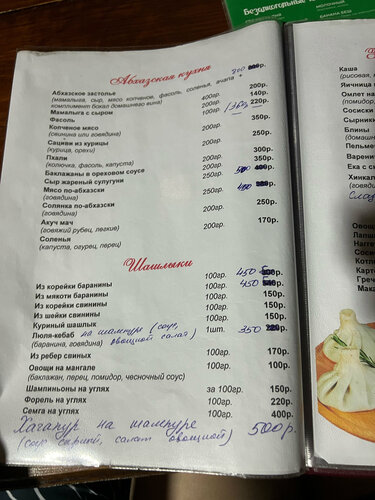 Безалкогольные
МОЛОЧНЫЙ
БАНАНА БЕШ
Абхазская кухня
Абхазское застолье 300
(мамалыга, сыр, мясо копченое, фасоль, соленья, ачапа + комплимент бокал домашнего вина) 200р.
Мамалыга с сыром 400гр. 140р.
Фасоль 200гр. 220р.
Копченое мясо 100гр. 350р.
(свинина или говядина)
Сациви из курицы 200гр. 250р.
(курица, орехи)
Пхали 200гр. 300р.
(колючка, фасоль, капуста) 350р.
Баклажаны в ореховом соусе 200гр. 200р.
Сыр жареный сулугуни 500 400р.
Мясо по-абхазски 250гр. 250р.
(говядина)
Солянка по-абхазски 200гр. 250р.
(говядина)
Акуч мач 200гр. 170р.
(говяжий рубец, легкие)
Соленья
(капуста, огурец, перец)
Шашлыки
Из корейки баранины 100гр. 450
Из мякоти баранины 100гр. 450
Из корейки свинины 100гр. 150р.
Из шейки свинины 100гр. 150р.
Куриный шашлык 100гр. 150р.
Люля-кебаб на шампуре (соус, 1шт. 350
(баранина, говядина) овощной салат)
Из ребер свиных 100гр. 170р.
Овощи на мангале 100гр. 100р.
(баклажан, перец, помидор, чесночный соус)
Шампиньоны на углях за 100гр. 150р.
Форель на углях 100гр. 220р.
Семга на углях 100гр. 400р.
Хачапур на шампуре
(сыр, салат овощной) 500р.
Каша
(рисовая,
Яичница
Омлет на
(помидор,
Сосиски
Сырники
Блины
(домашн
Пельме
Варени
Ека с
Хинкал